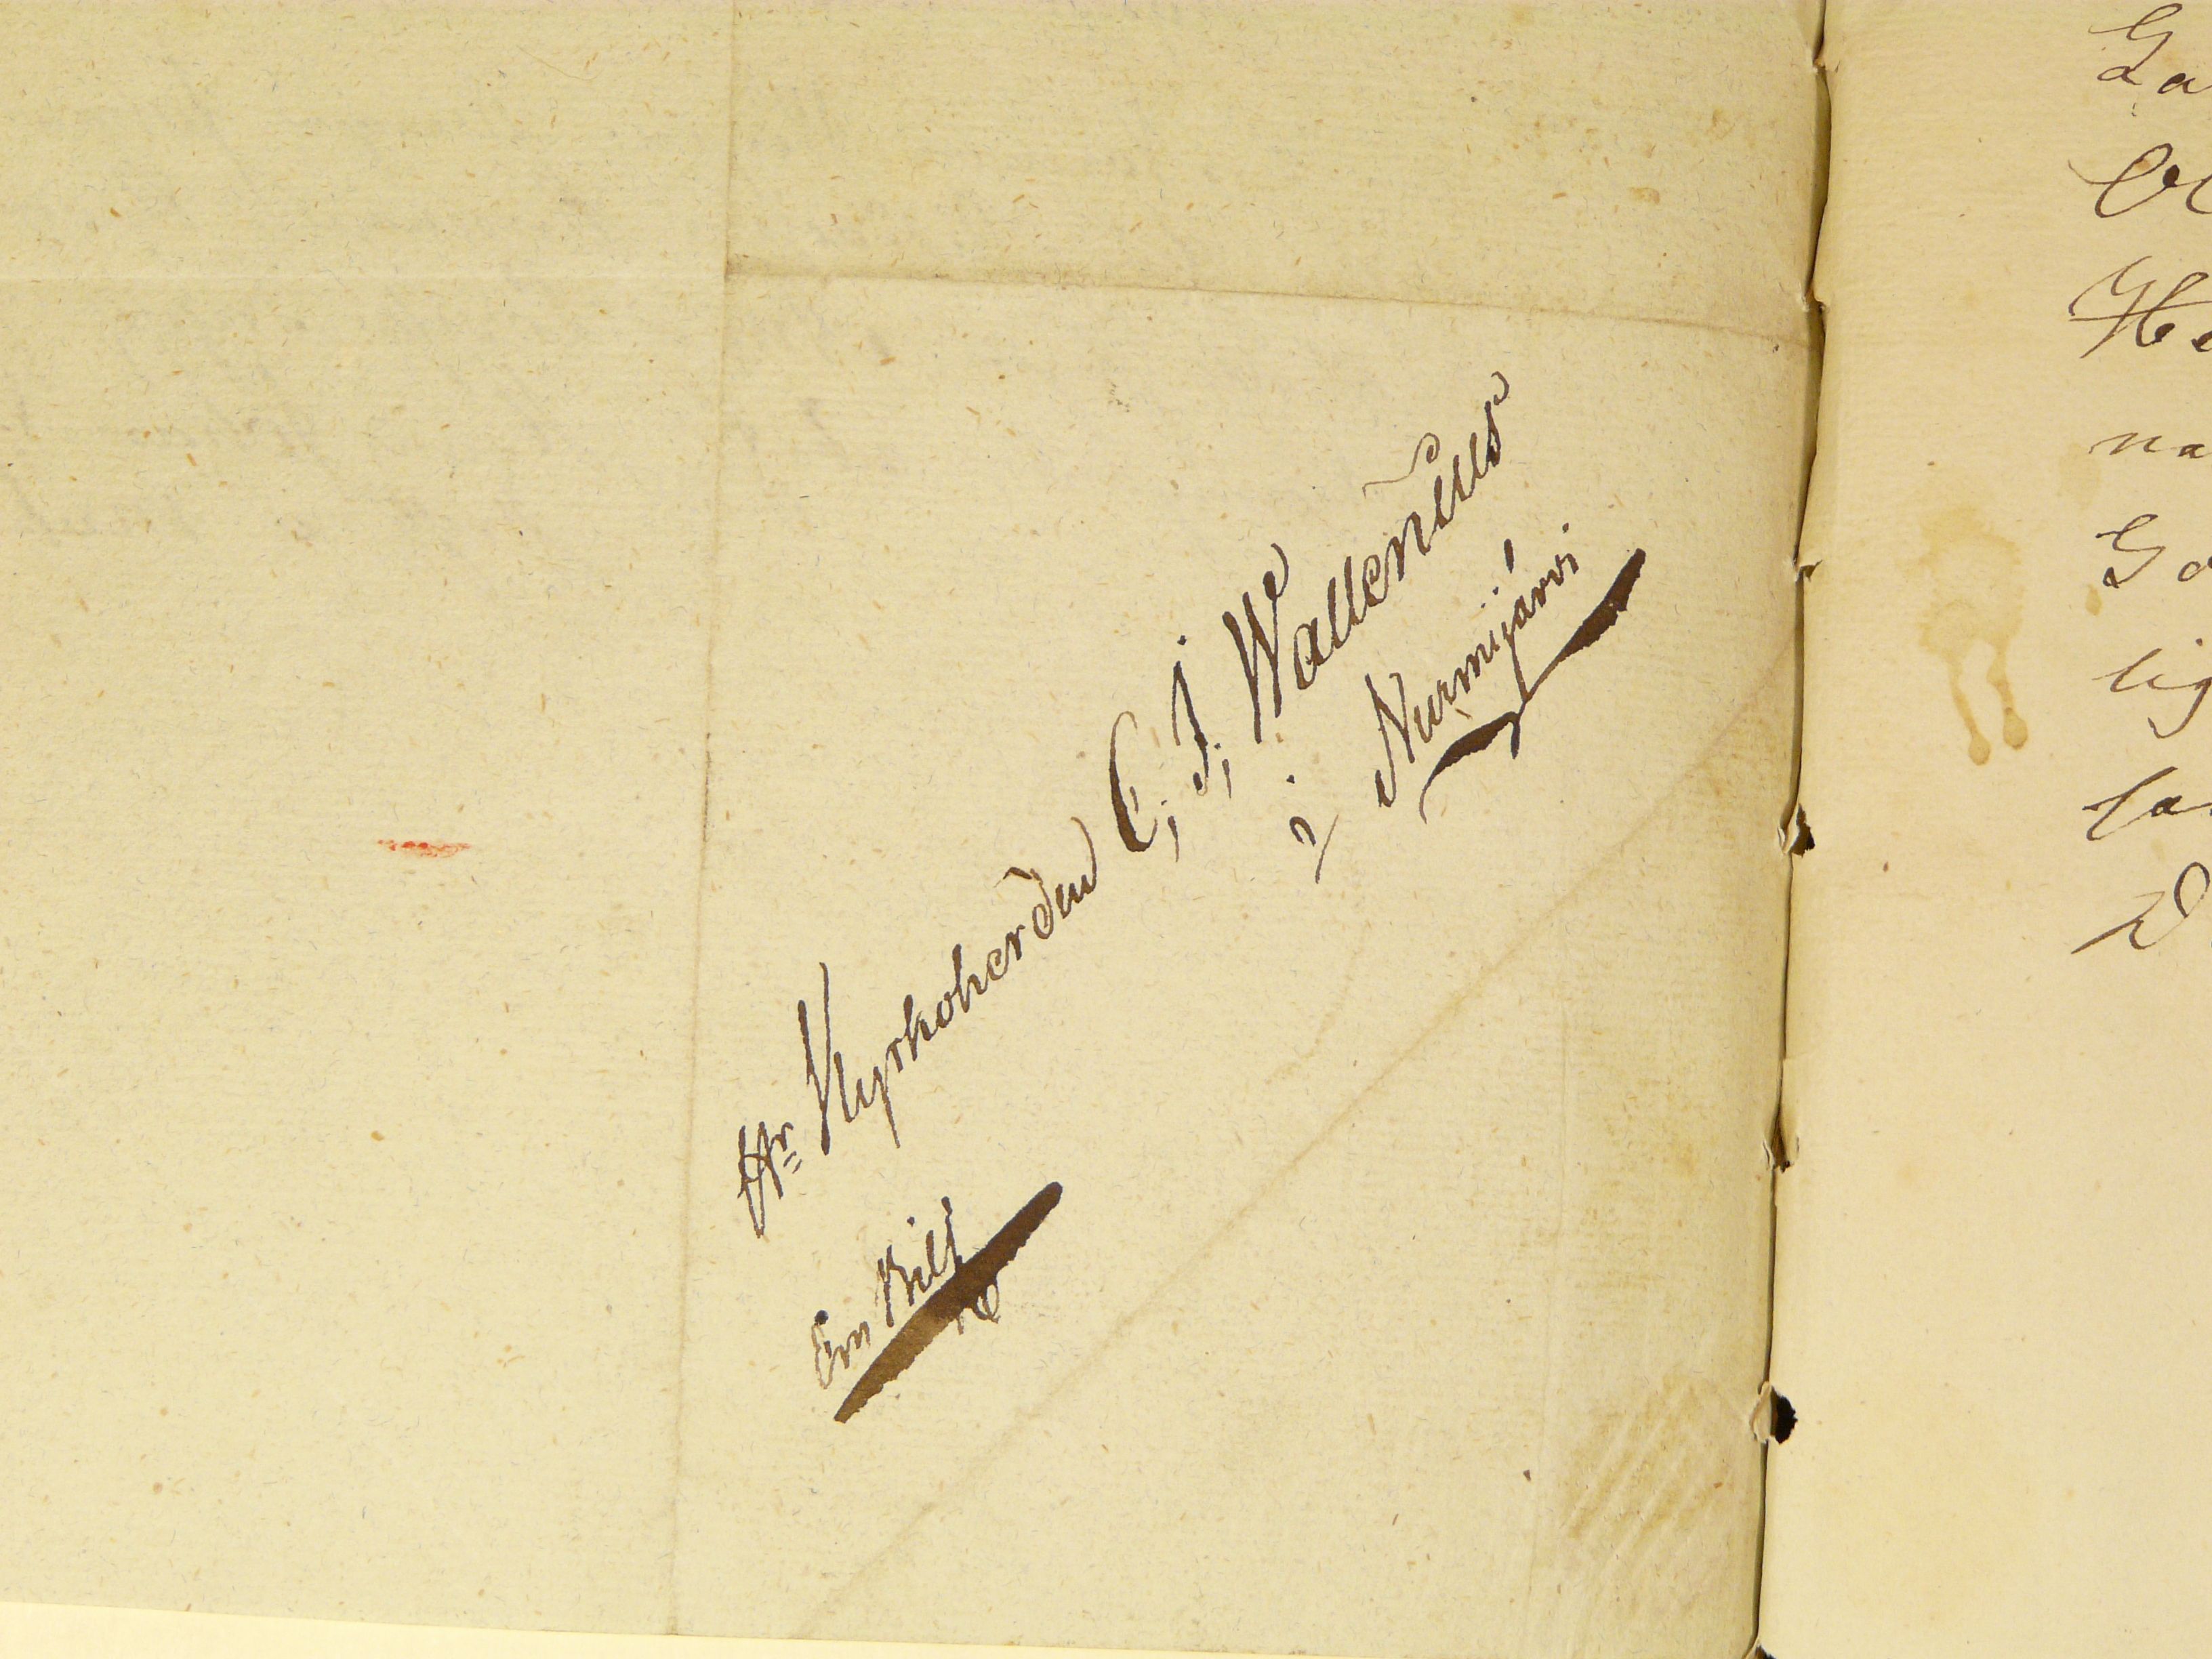 Hr Kyrkoherden C. J. Wallenius
i Nurmijärvi
Em Bilj
La
Ol
He
na
Go
lig
D